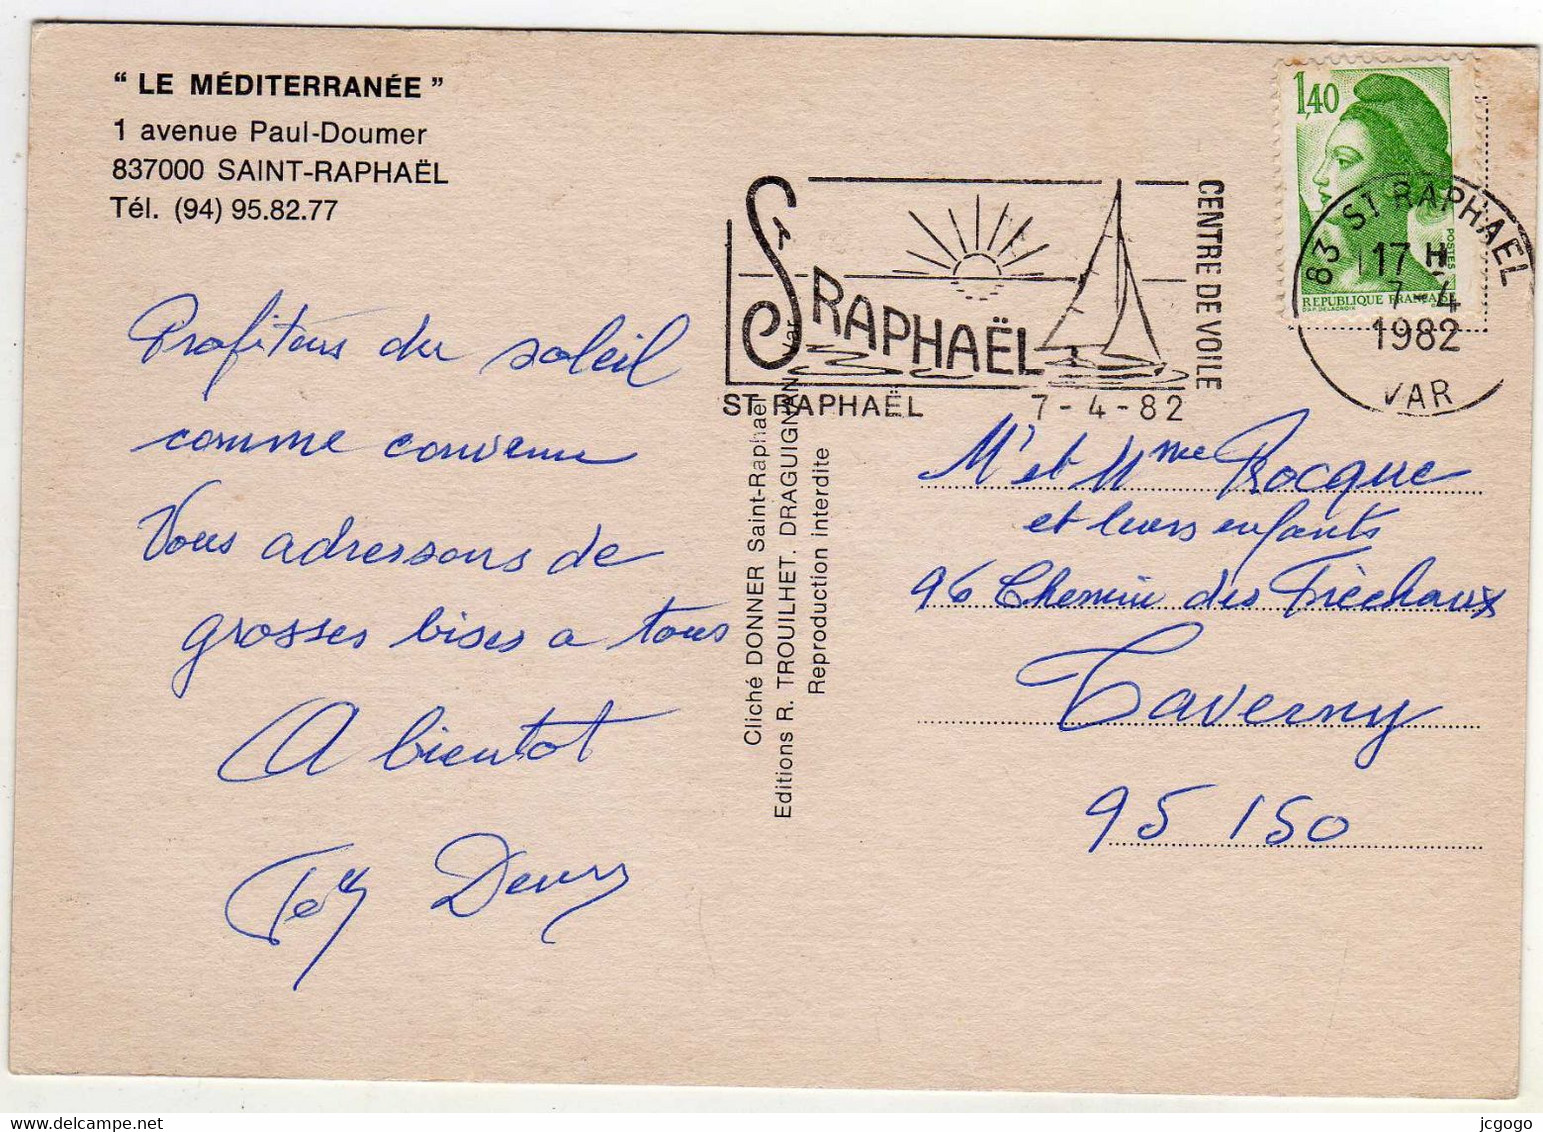 “ LE MÉDITERRANÉE ”
1 avenue Paul-Doumer
837000 SAINT-RAPHAËL
Tél. (94) 95.82.77
Profitons du soleil
comme convenu
Vous adressons de
grosses bises a tous
A bientot
Cliché DONNER Saint-Raphaël
Editions R. TROUILHET. DRAGUIGNAN Var
Reproduction interdite
St RAPHAËL
CENTRE DE VOILE
ST RAPHAËL 7-4-82
1,40
POSTES
REPUBLIQUE FRANÇAISE
D'AP. DELACROIX
83 ST RAPHAEL
17 H
7-4
1982
VAR
Mr et Mme Procque
et leurs enfants
96 Chemin des
Taverny
95 150
jcgogo